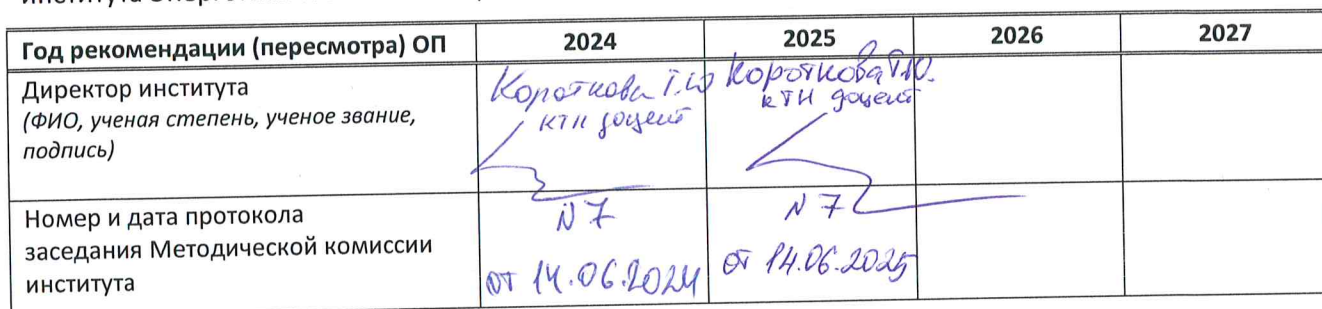 Год рекомендации (пересмотра) ОП 2024 2025 2026 2027
Директор института
(ФИО, ученая степень, ученое звание,
подпись)
Короткова Т.Ю
ктн доцент
Короткова Т.Ю.
ктн доцент
Номер и дата протокола
заседания Методической комиссии
института
N 7
от 14.06.2024
N 7
от 14.06.2025